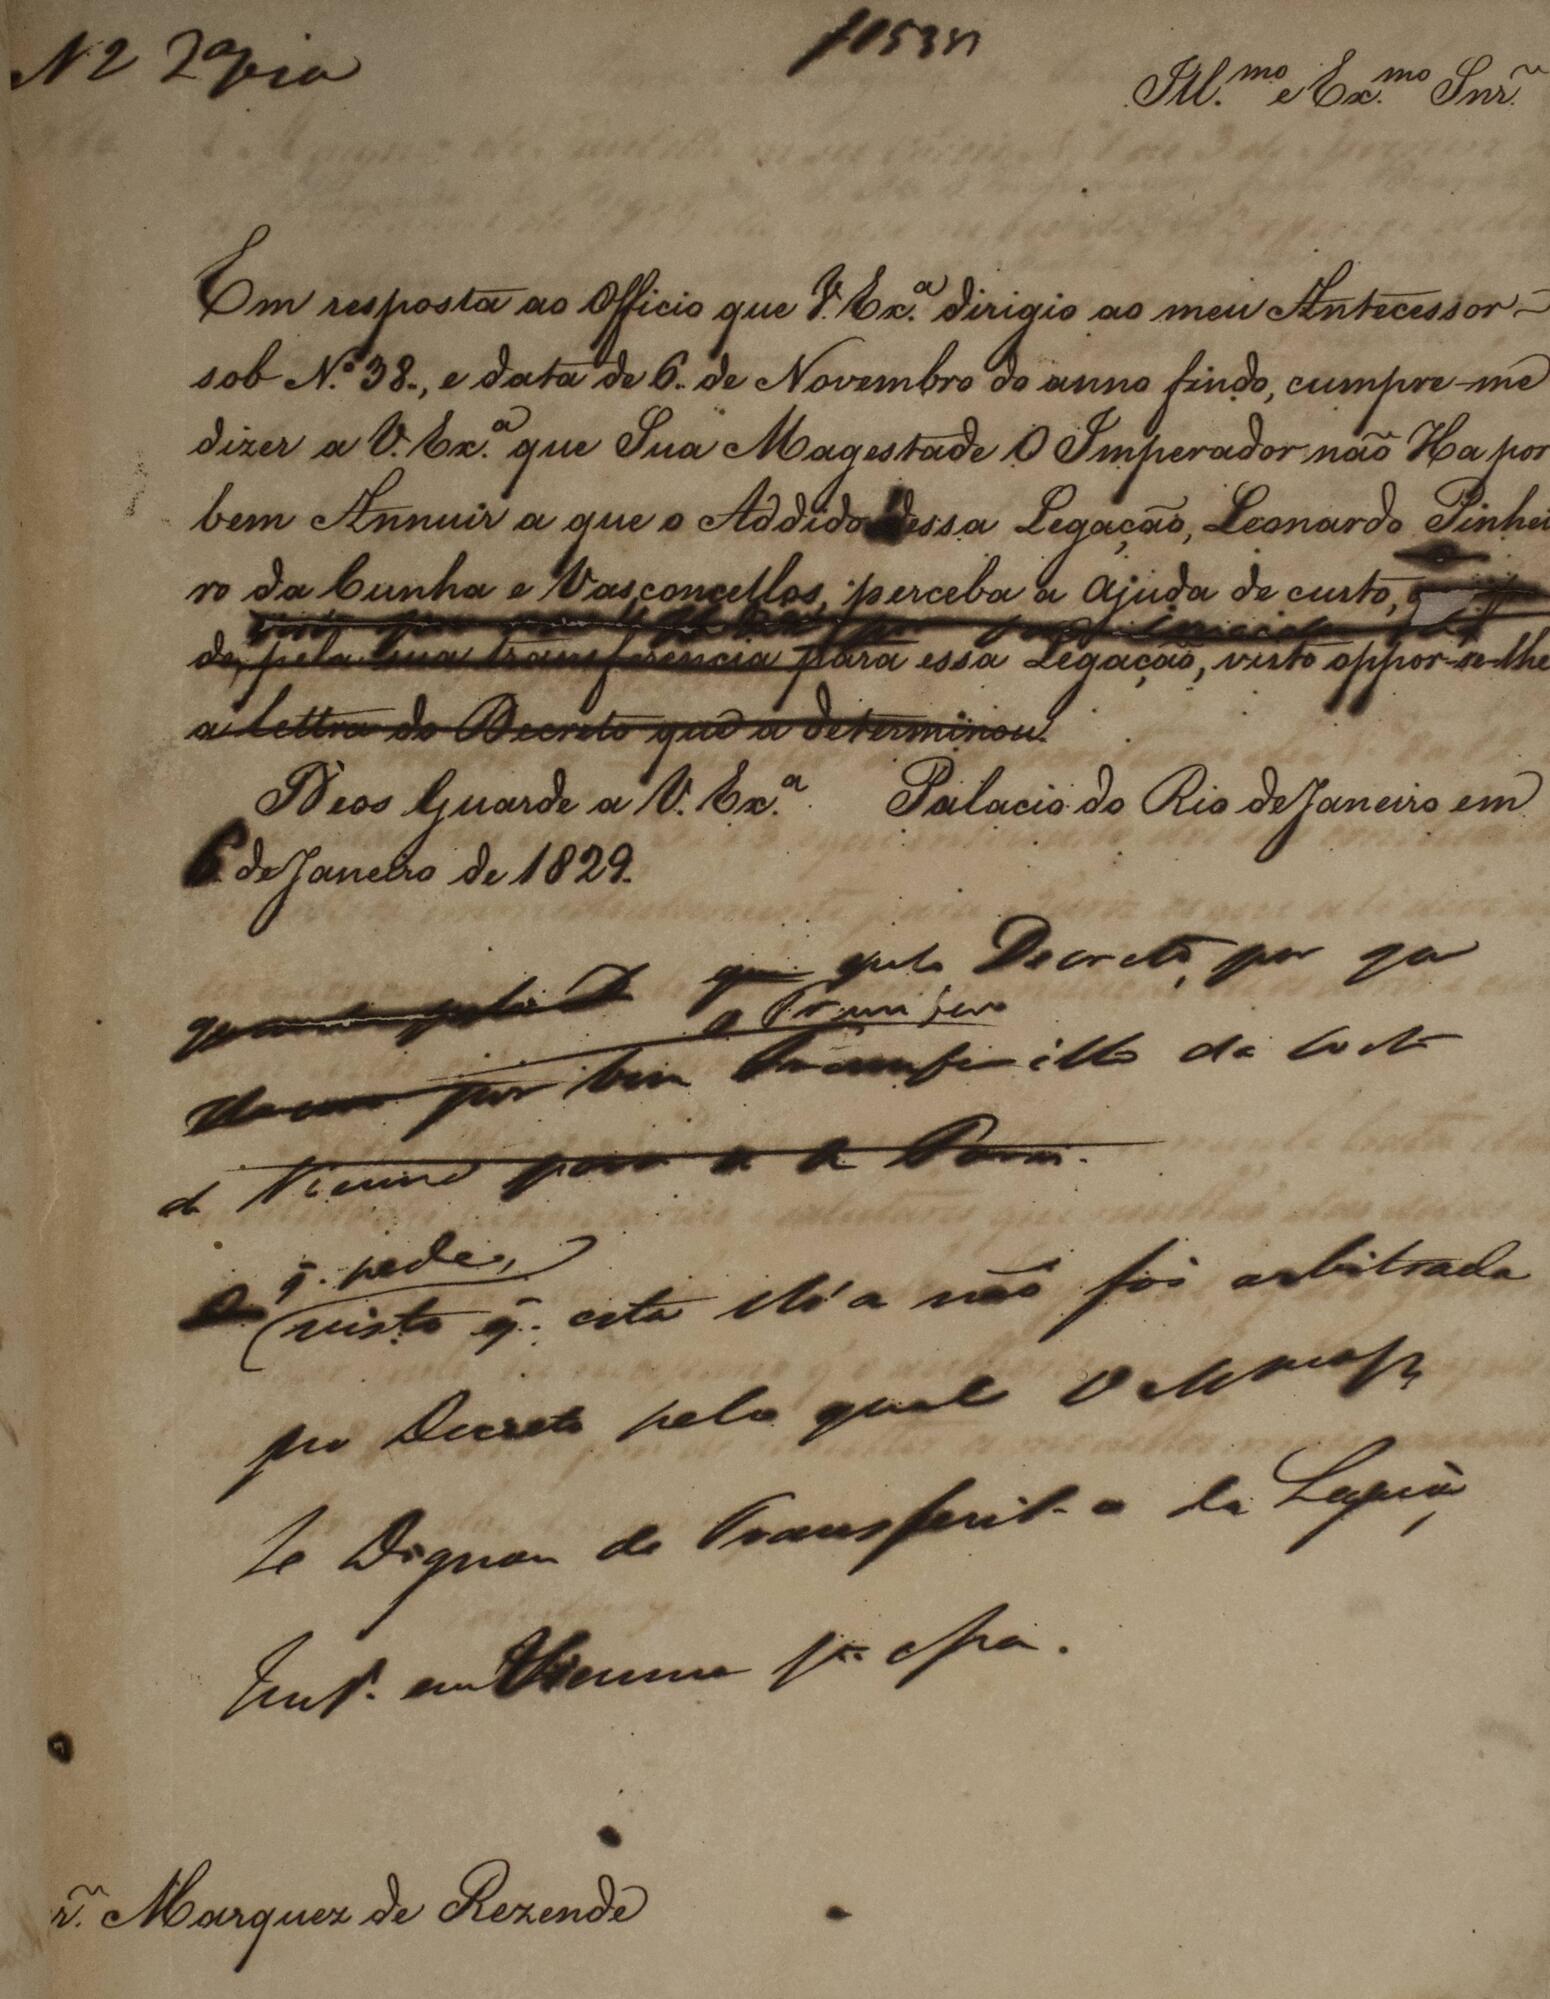 N 2 2ª via
Ill.mo e Ex.mo Snr.
Em resposta ao Officio que V. Ex.a dirigio ao meu Antecessor
sob N.o 38., e data de 6. de Novembro do anno findo, cumpre-me
dizer a V. Ex.a que Sua Magestade O Imperador não Ha por
bem Annuir a que o Addido dessa Legação, Leonardo Pinhei
ro da Cunha e Vasconcellos, perceba a Ajuda de custo,
de, pela sua transferencia para essa Legação, visto oppor-se-lhe
a lettra do Decreto que a determinou.
Deos Guarde a V. Ex.a Palacio do Rio de Janeiro em
6 de Janeiro de 1829.
que pelo Decreto, por que
o Transfere
por bem da Corte
de Vienna para a de
q. pede,
visto q. esta não foi arbitrada
no Decreto pelo qual O
Se Dignou de Transferil-o da Legação
em Vienna p.a essa.
r. Marquez de Rezende